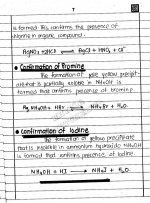 7
is formed. This confirms the presence of
chlorine in organic compound.
AgNO₃ + 2HCl → AgCl + HNO₃ + Cl⁻
• Confirmation of Bromine
The formation of pale yellow precipit-
ate that is partially soluble in NH₄OH is
formed that confirms presence of bromine.
NH₄OH + HBr → NH₄Br + H₂O.
• Confirmation of Iodine
The formation of yellow precipitate
that is insoluble in ammonium hydroxide NH₄OH
is formed that confirms presence of iodine.
NH₄OH + HI → NH₄I + H₂O.